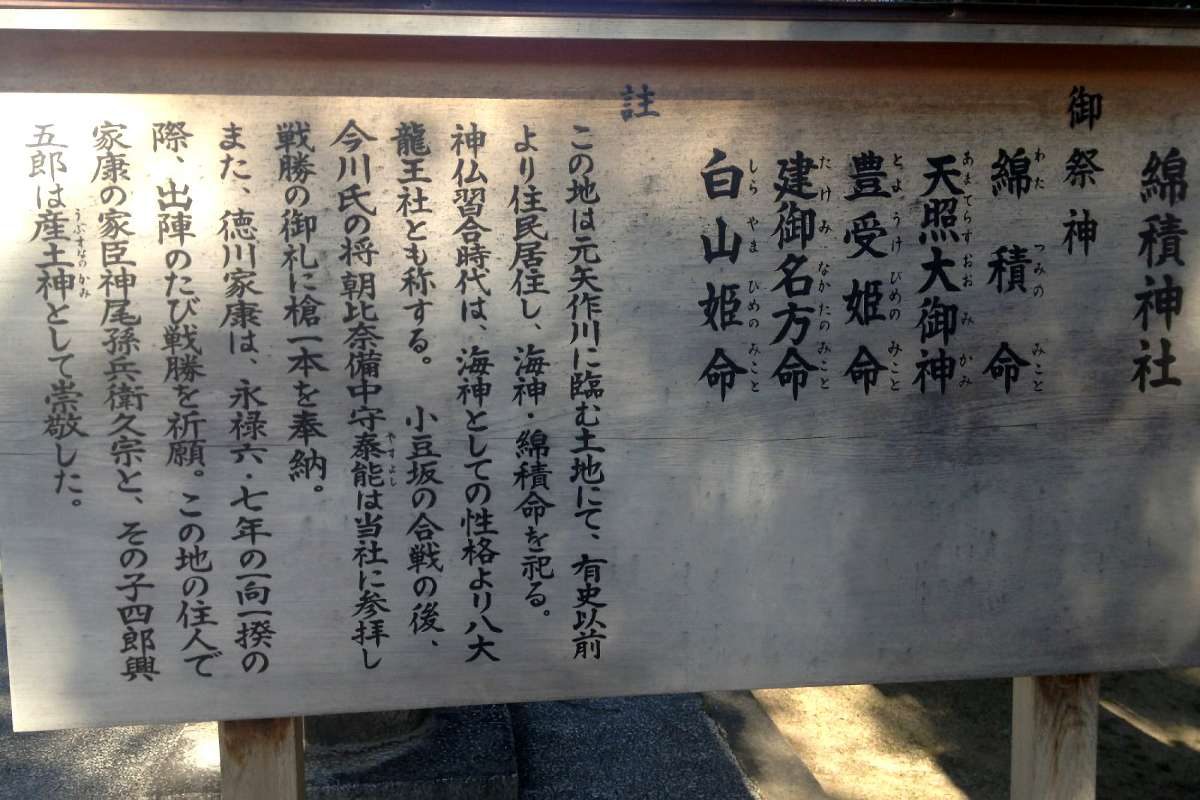 綿積神社
御祭神
綿積命
わたつみのみこと
天照大御神
あまてらすおおみかみ
豊受姫命
とようけびめのみこと
建御名方命
たけみなかたのみこと
白山姫命
しらやまひめのみこと
註
この地は元矢作川に臨む土地にて、有史以前
より住民居住し、海神・綿積命を祀る。
神仏習合時代は、海神としての性格より八大
龍王社とも称する。 小豆坂の合戦の後、
今川氏の将朝比奈備中守泰能は当社に参拝し
やすよし
戦勝の御礼に槍一本を奉納。
また、徳川家康は、永禄六・七年の一向一揆の
際、出陣のたび戦勝を祈願。この地の住人で
家康の家臣神尾孫兵衛久宗と、その子四郎興
五郎は産土神として崇敬した。
うぶすなのかみ